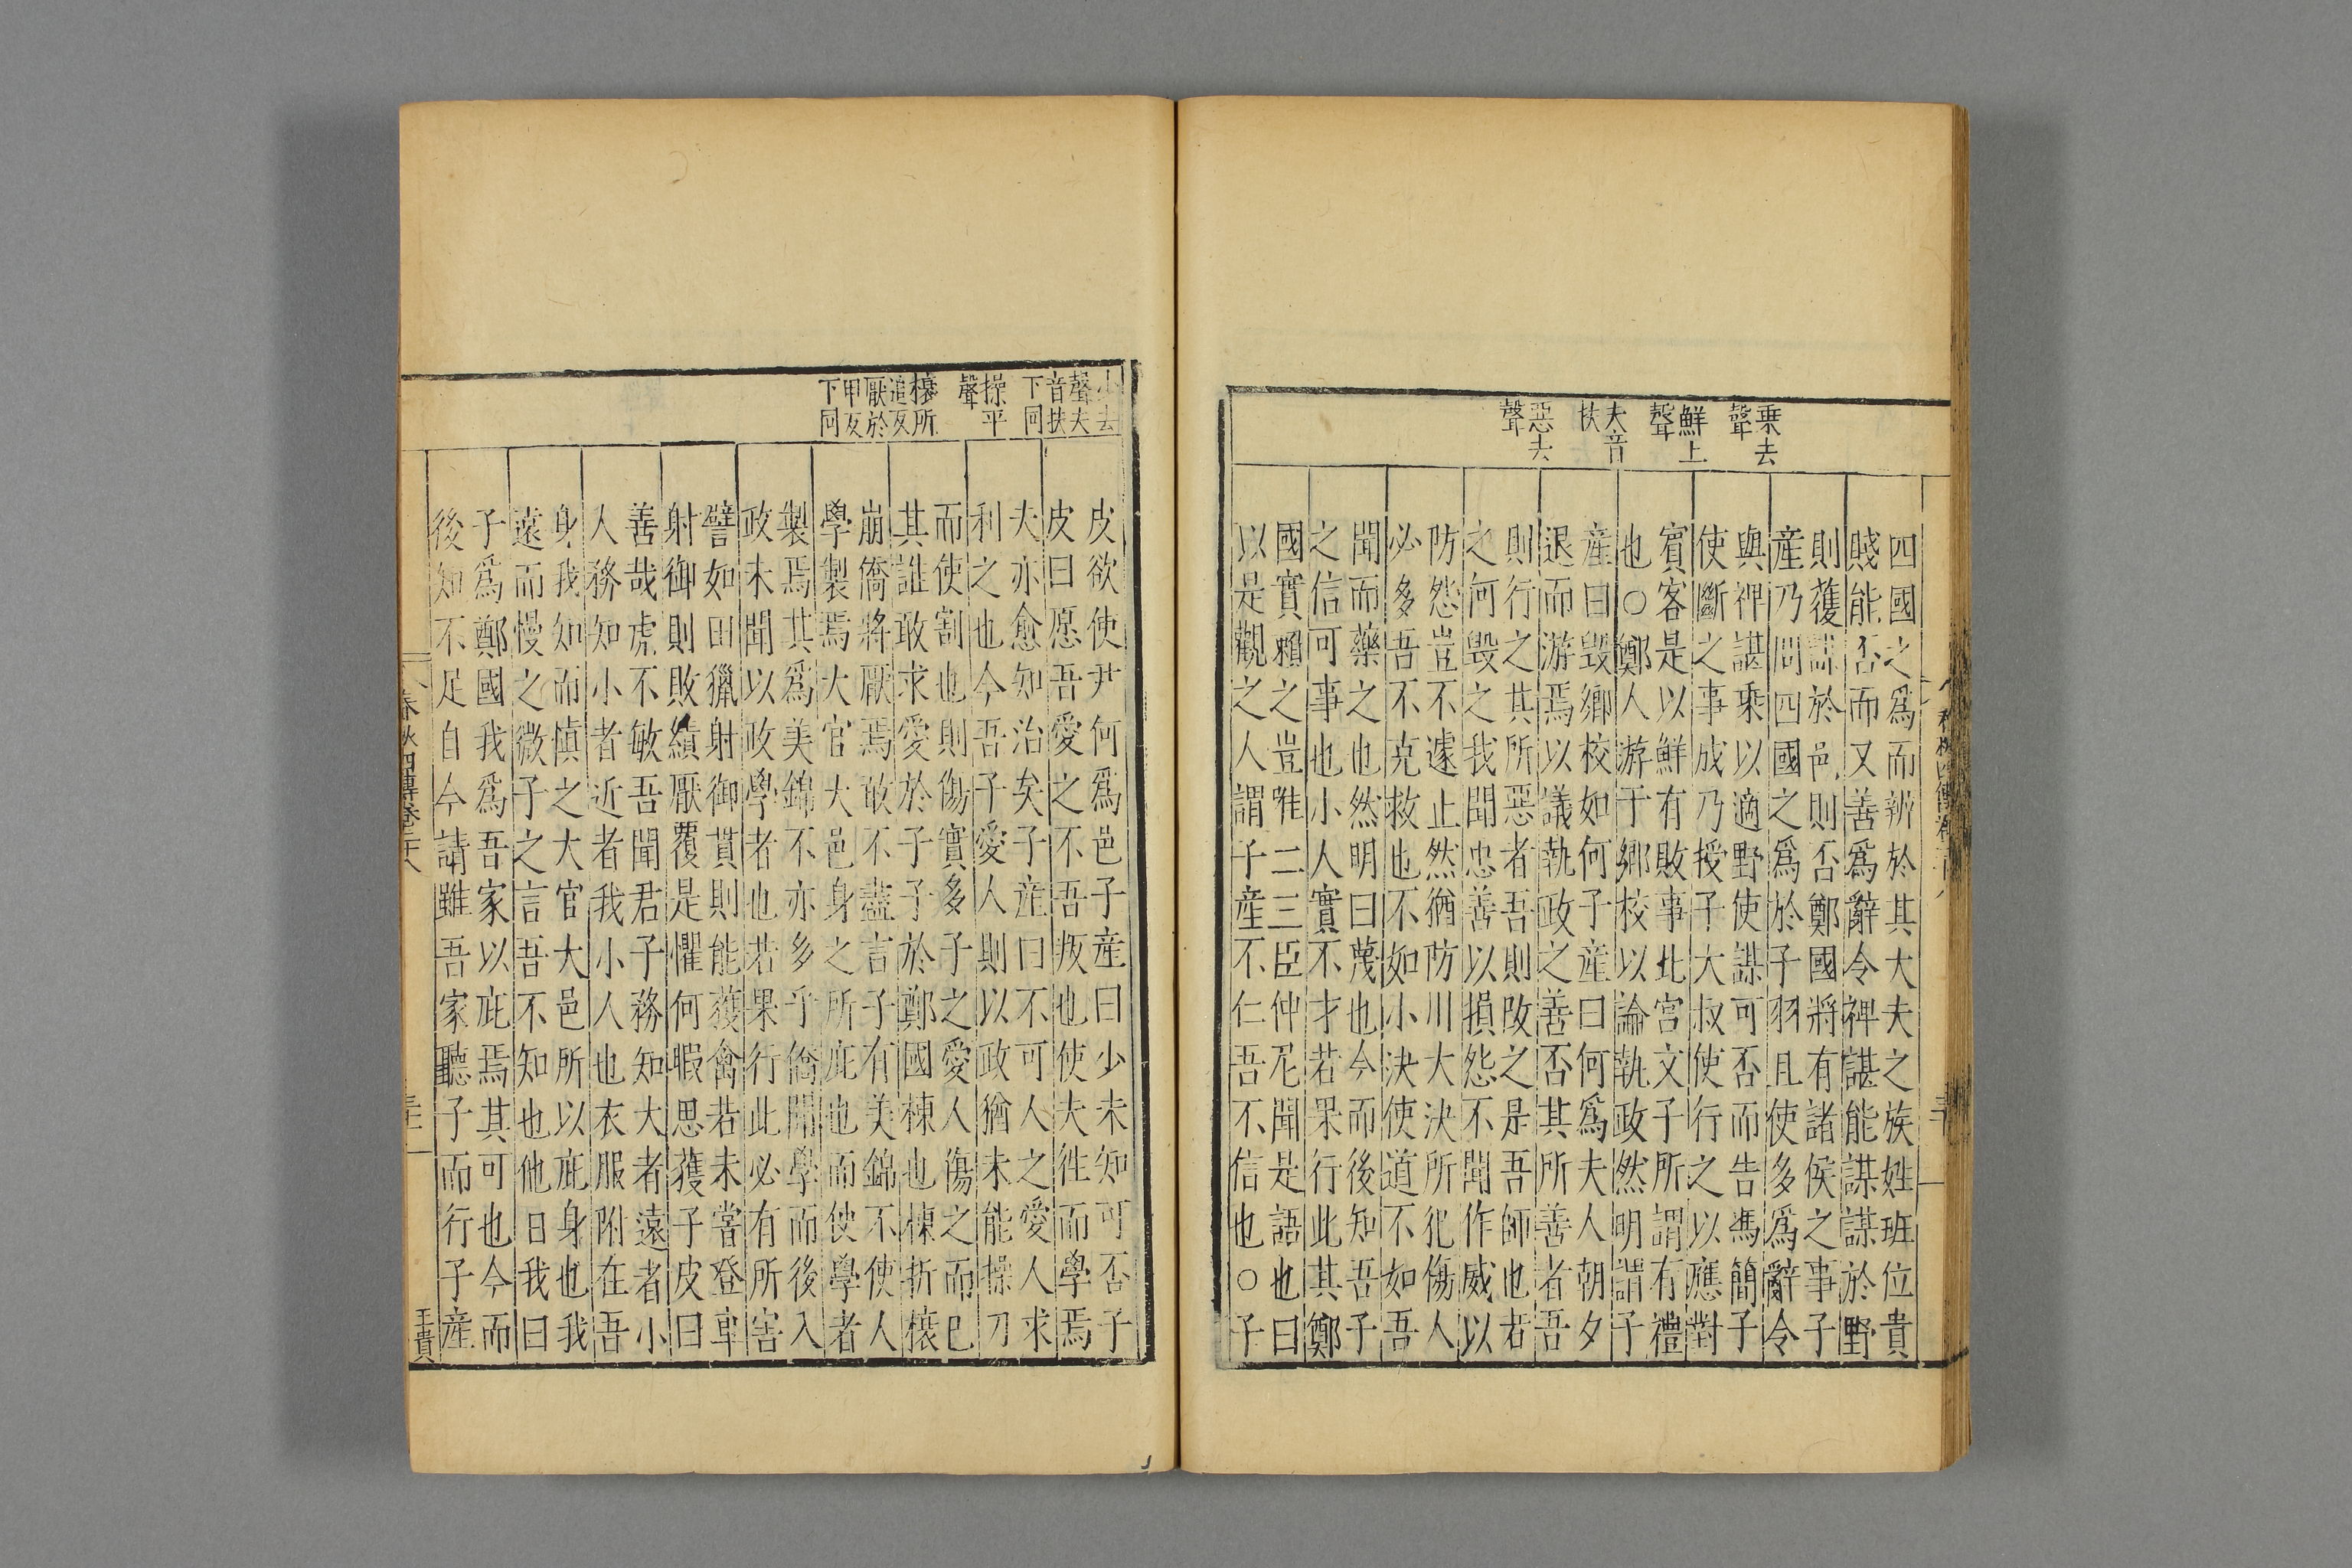 乗去
聲
鮮上
聲
夫音
扶
惡去
聲
四國之爲而辨於其大夫之族姓班位貴
賤能否而又善爲辭令禆諶能謀謀於野
則獲謀於邑則否鄭國將有諸侯之事子
産乃問四國之爲於子羽且使多爲辭令
與禆諶乗以適野使謀可否而告馮簡子
使斷之事成乃授子大叔使行之以應對
賓客是以鮮有敗事北宮文子所謂有禮
也○鄭人游于鄉校以論執政然明謂子
産曰毀鄉校如何子産曰何爲夫人朝夕
退而游焉以議執政之善否其所善者吾
則行之其所惡者吾則改之是吾師也若
之何毀之我聞忠善以損怨不聞作威以
防怨豈不遽止然猶防川大決所犯傷人
必多吾不克救也不如小決使道不如吾
聞而藥之也然明曰蔑也今而後知吾子
之信可事也小人實不才若果行此其鄭
國實賴之豈唯二三臣仲尼聞是語也曰
以是觀之人謂子産不仁吾不信也○子
少去
聲夫
音扶
下同
操平
聲
榱所
追反
厭於
甲反
下同
皮欲使尹何爲邑子産曰少未知可否子
皮曰愿吾愛之不吾叛也使夫往而學焉
夫亦愈知治矣子産曰不可人之愛人求
利之也今吾子愛人則以政猶未能操刀
而使割也則傷實多子之愛人傷之而已
其誰敢求愛於子子於鄭國棟也棟折榱
崩僑將厭焉敢不盡言子有美錦不使人
學製焉大官大邑身之所庇也而使學者
製焉其爲美錦不亦多乎僑聞學而後入
政未聞以政學者也若果行此必有所害
譬如田獵射御貫則能獲禽若未嘗登車
射御則敗績厭覆是懼何暇思獲子皮曰
善哉虎不敏吾聞君子務知大者遠者小
人務知小者近者我小人也衣服附在吾
身我知而慎之大官大邑所以庇身也我
遠而慢之微子之言吾不知也他日我曰
子爲鄭國我爲吾家以庇焉其可也今而
後知不足自今請雖吾家聽子而行子産
春秋四傳卷二十八
三十一
王貴